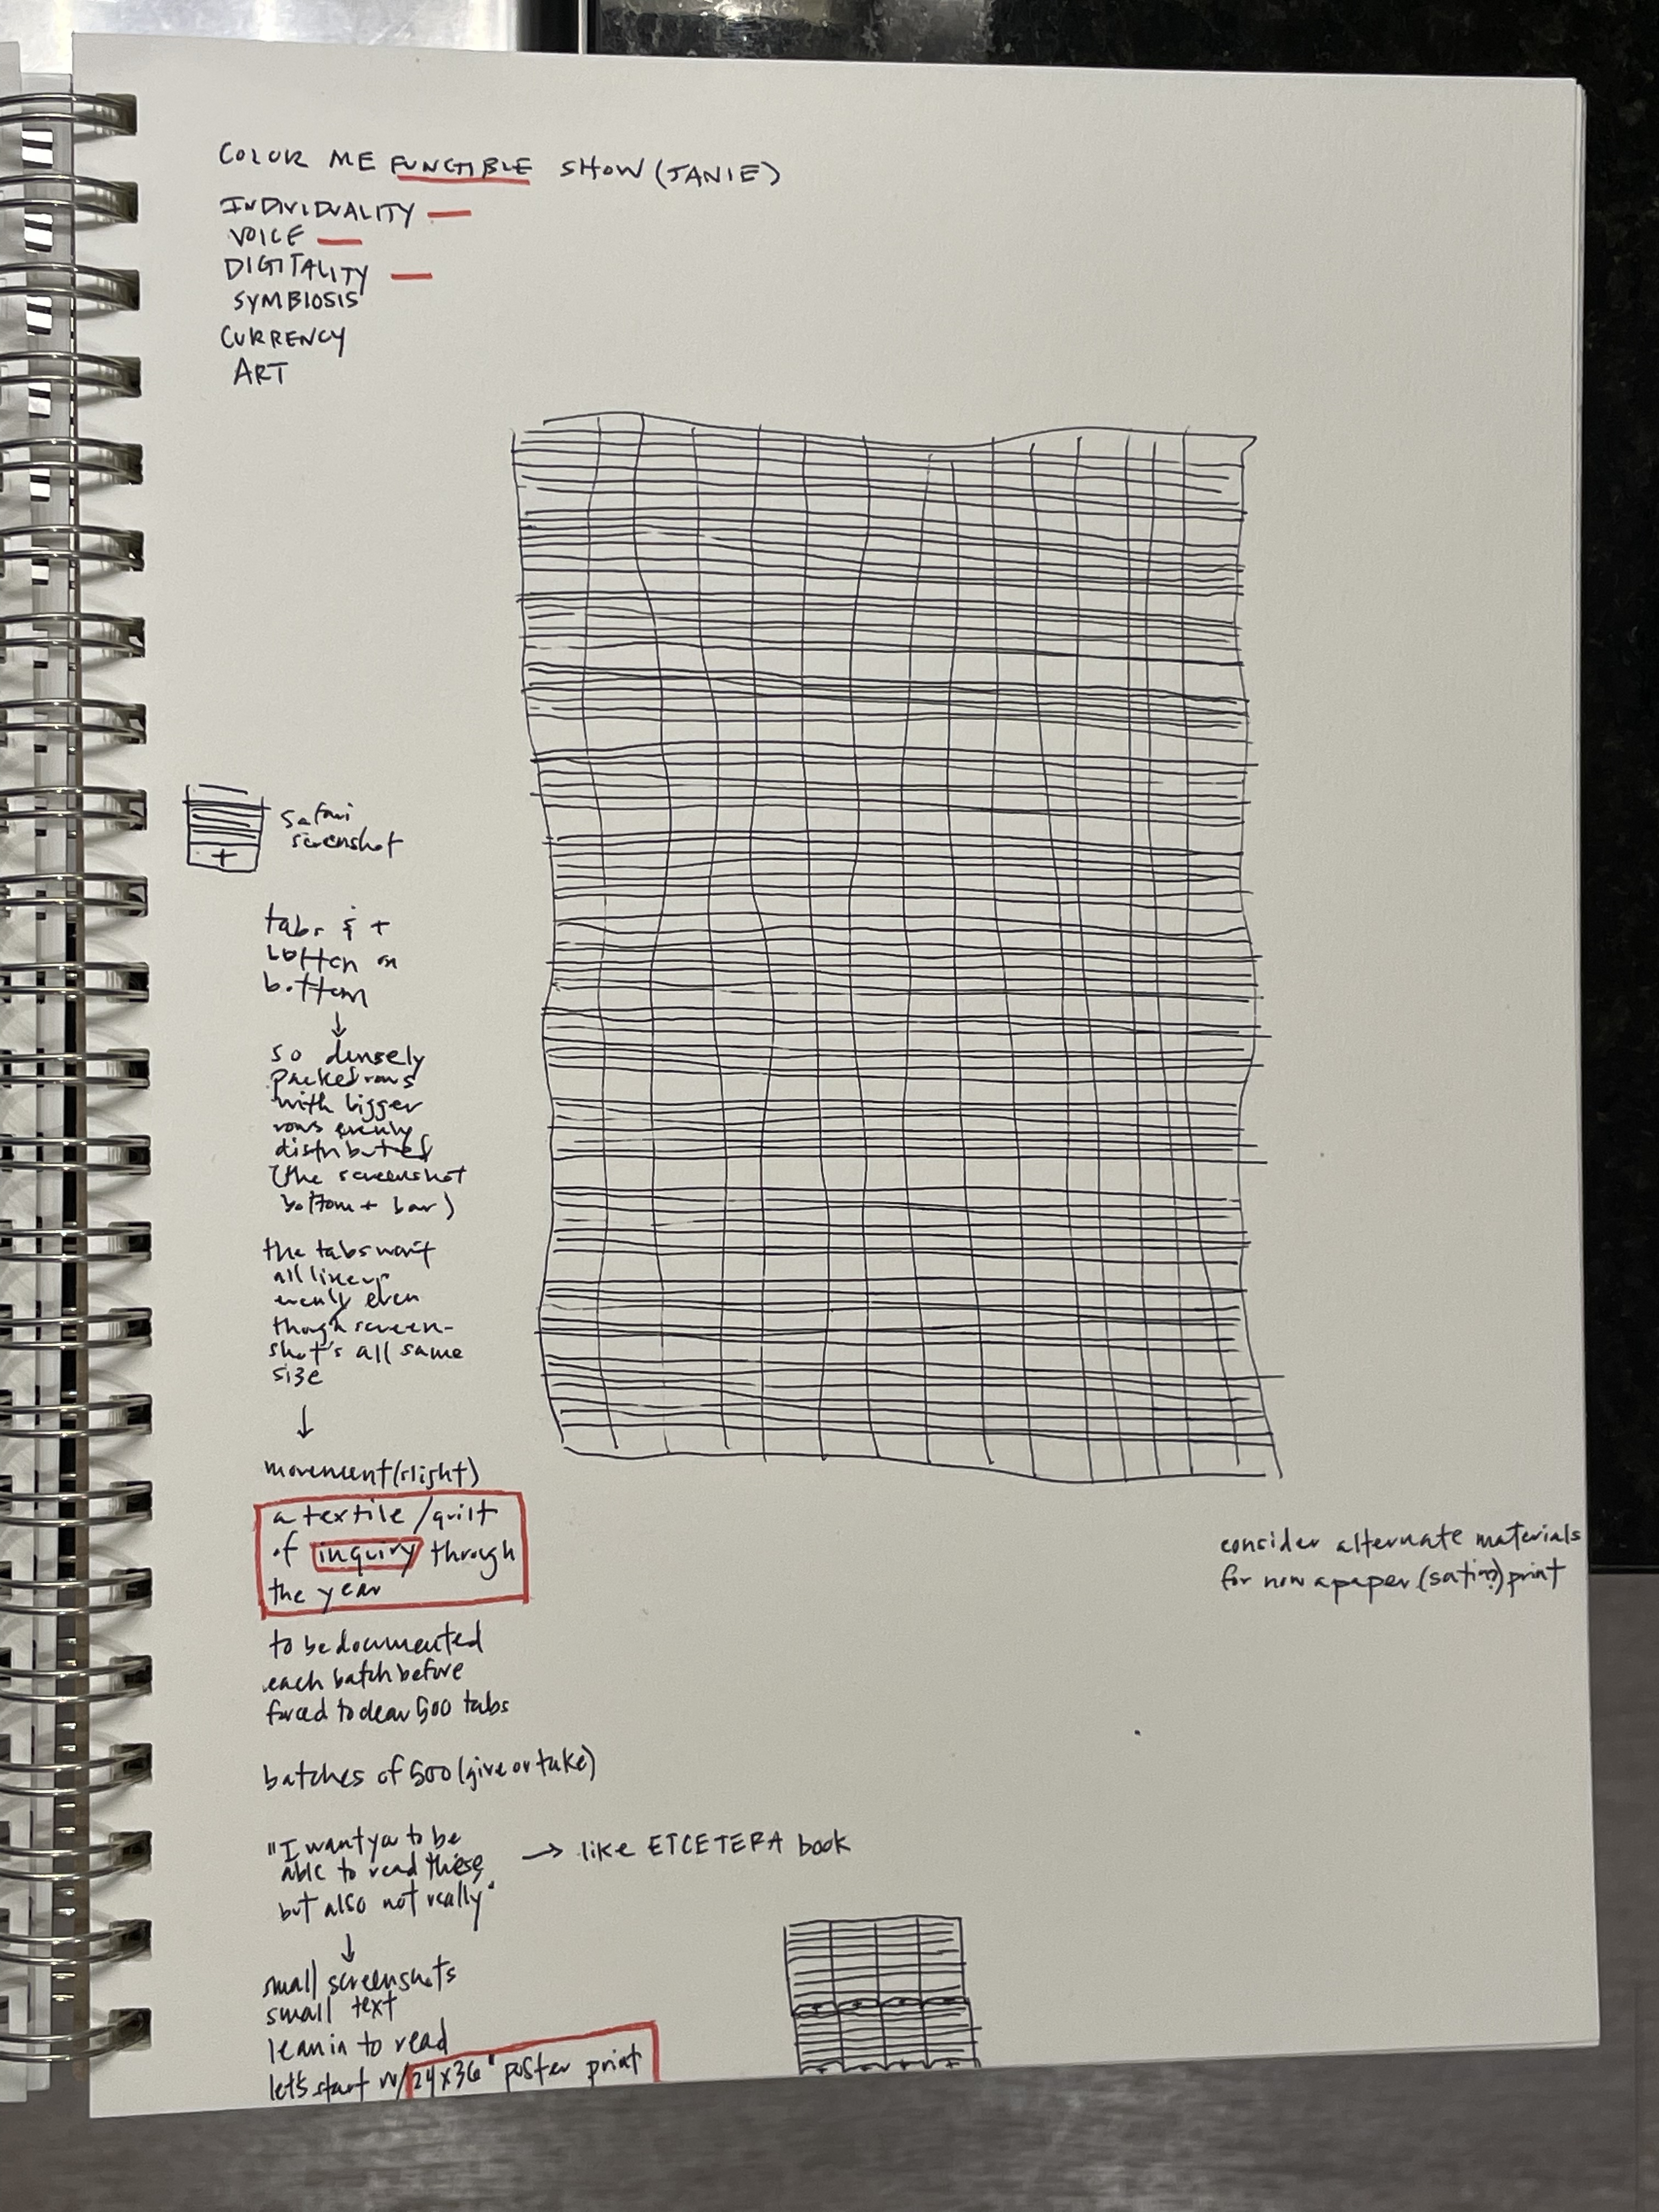 COLOR ME FUNGIBLE SHOW (JANIE)
INDIVIDUALITY —
VOICE —
DIGITALITY —
SYMBIOSIS
CURRENCY
ART
+
safari
screenshot
tabs & +
button on
bottom
↓
so densely
packed rows
with bigger
rows evenly
distributed
(the screenshot
bottom + bar)
the tabs won't
all line up
evenly even
though screen-
shot's all same
size
↓
movement (slight)
a textile/quilt
of inquiry through
the year
consider alternate materials
for now a paper (satin?) print
to be documented
each batch before
forced to clear 500 tabs
batches of 500 (give or take)
"I want you to be
able to read these
but also not really"
→ like ETCETERA book
↓
small screenshots
small text
lean in to read
let's start w/ 24x36" poster print
+ + + +
+ + + +